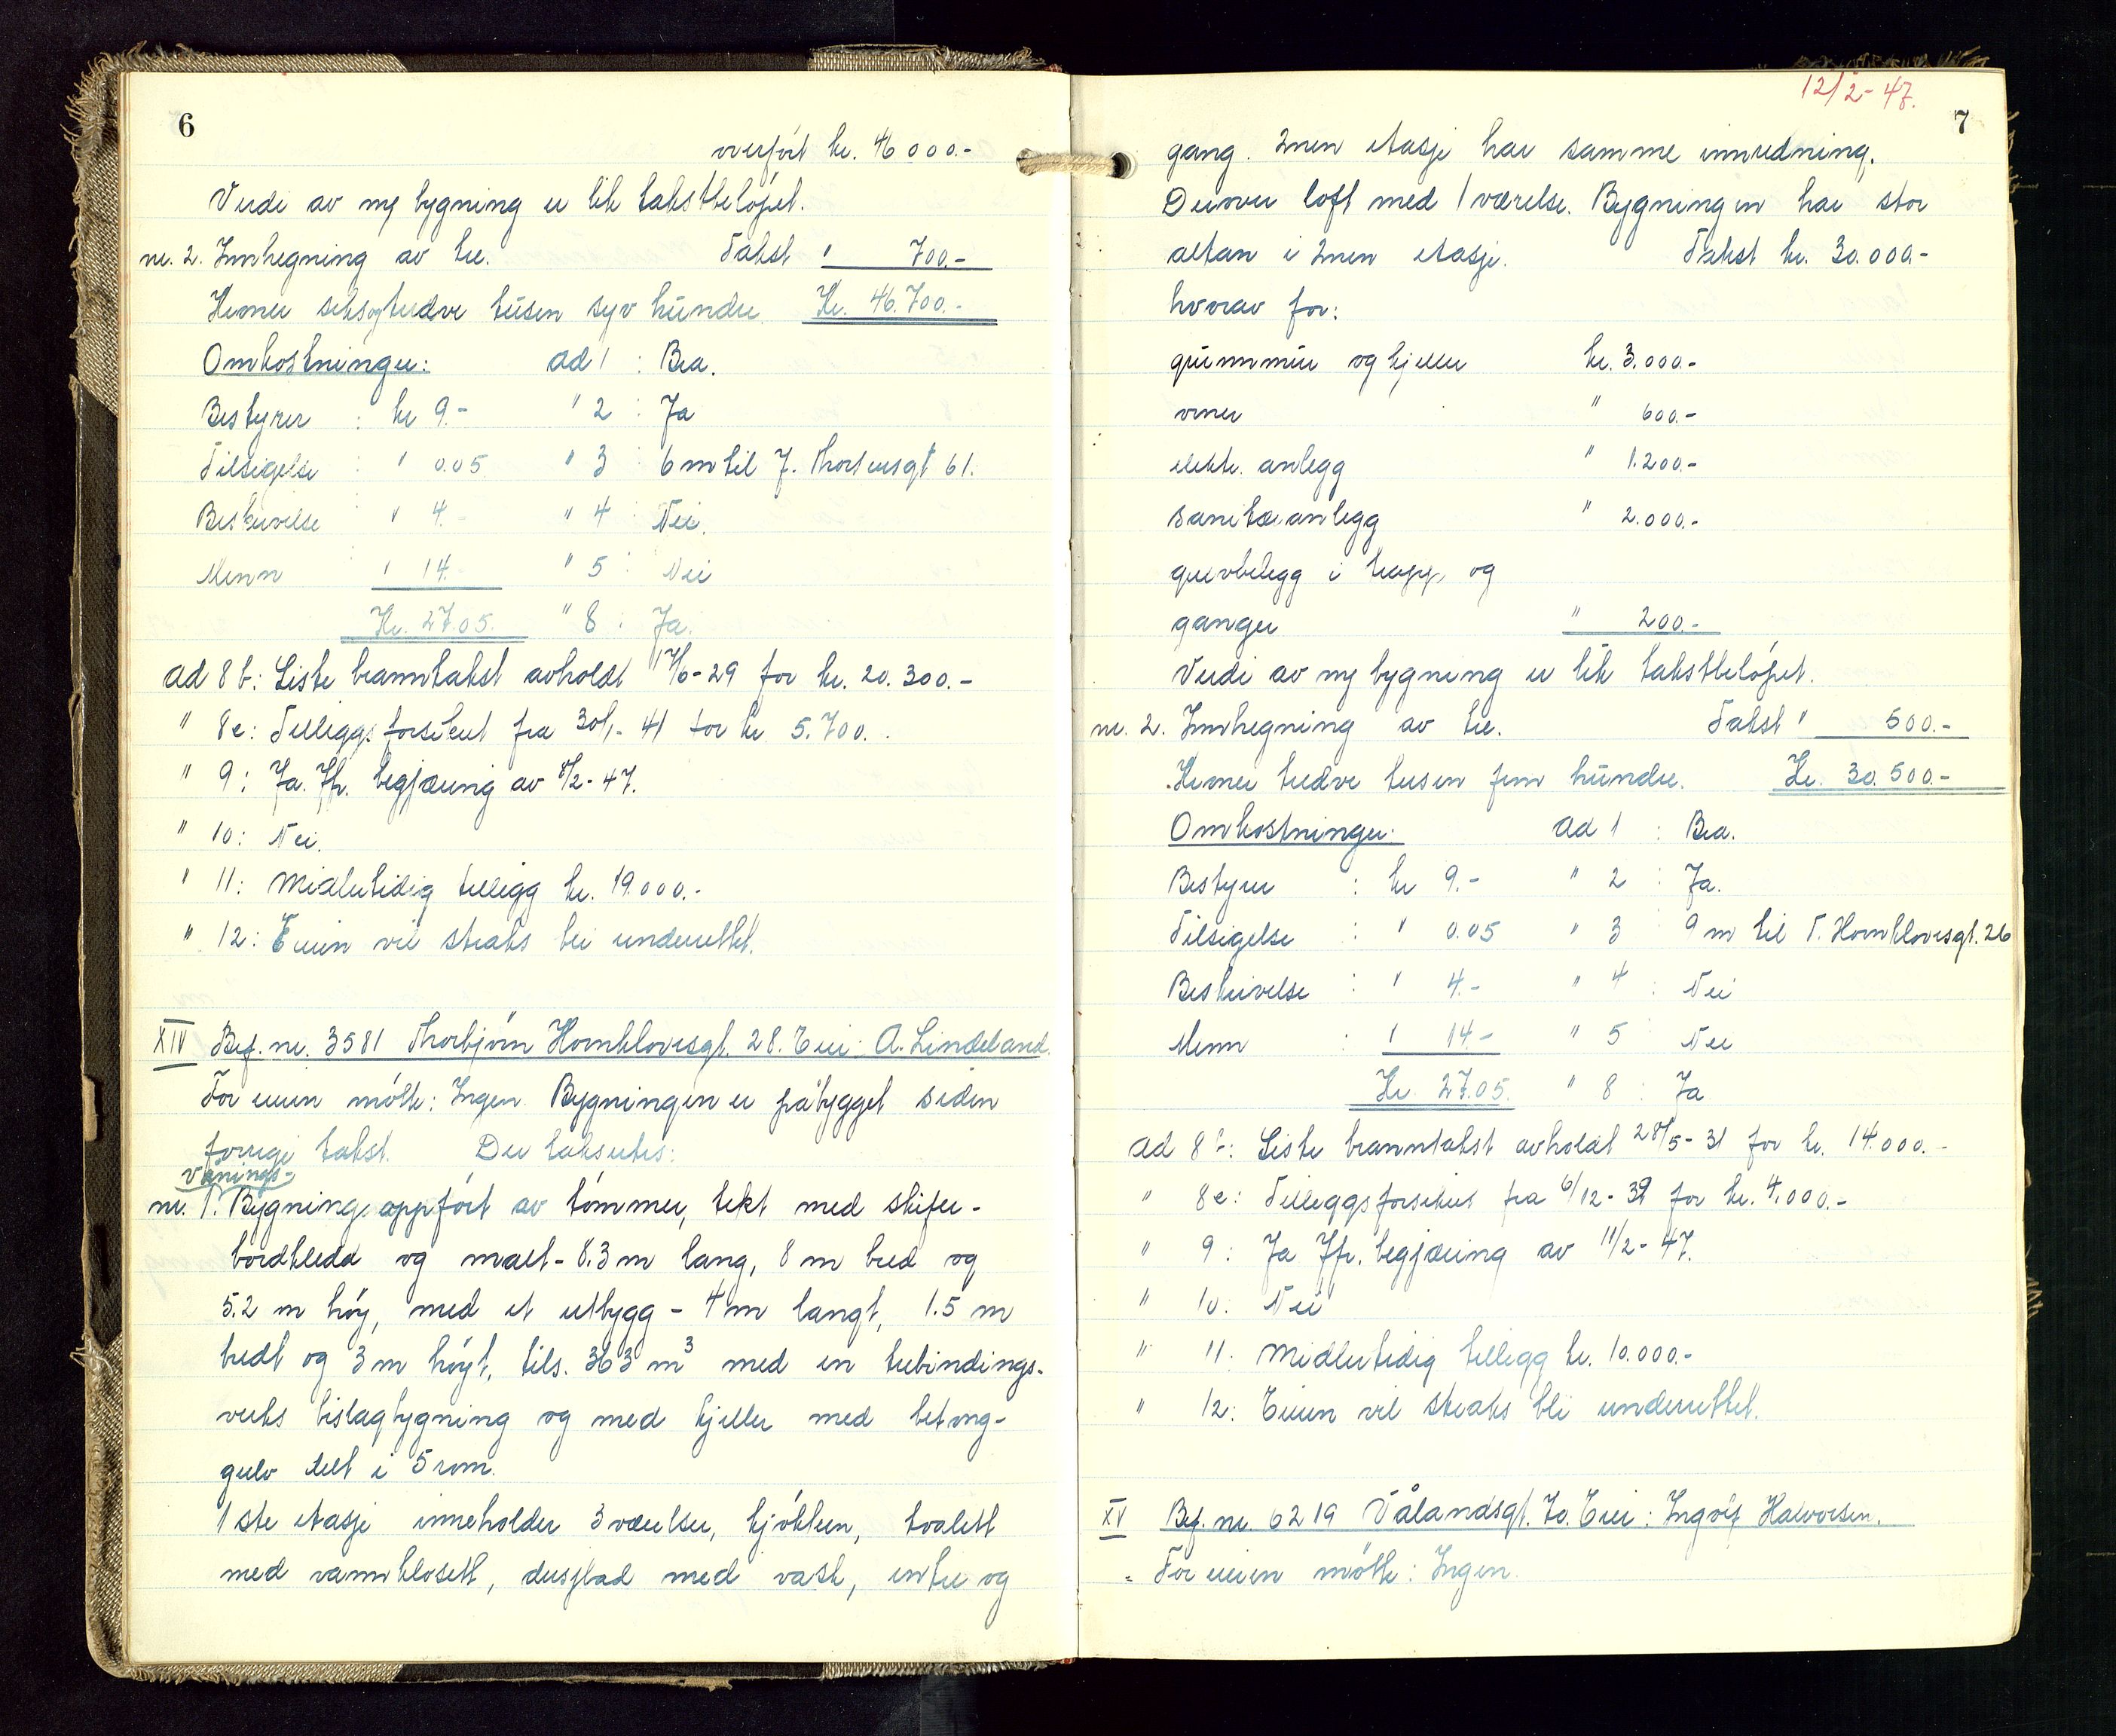 6
overført kr. 46000.-
Verdi av ny bygning er lik takstbeløpet.
nr. 2. Innhegning av tre. Takst " 700.-
Kroner seksogtredve tusen syv hundre. Kr. 46.700.-
Omkostninger: ad 1 : Bra.
Bestyrer : kr 9.- " 2 : Ja
Tilsigelse " 0.05 " 3 : 6 m til J. Thorsensgt 61.
Beskrivelse " 4.- " 4 : Nei.
Menn " 14.- " 5 : Nei
Kr. 27.05. " 8 : Ja.
ad 8 b: Siste branntakst avholdt 17/6-29 for kr. 20.300.-
" 8e: Tilleggsforsikret fra 30/1-41 for kr 5.700.-
" 9: Ja. Jfr. begjæring av 8/2-47.
" 10: Nei.
" 11: Midlertidig tillegg kr. 19.000.-
" 12: Eieren vil straks bli underrettet.
XIV Bef. nr. 3581 Thorbjørn Hornklovesgt. 28. Eier: A. Lindeland.
For eieren møtte: Ingen. Bygningen er påbygget siden
forrige takst. Der takseres:
vånings-
nr. 1. Bygning oppført av tømmer, tekt med skifer -
bordkledd og malt - 8.3 m lang, 8 m bred og
5.2 m høy, med et utbygg - 4 m langt, 1.5 m
bredt og 3 m høyt, tils. 363 m3 med en trebindings-
verks bislagbygning og med kjeller med betong-
gulv delt i 5 rom.
1ste etasje inneholder 3 værelser, kjøkken, toalett
med vannklosett, dusjbad med vask, entre og
12/2-47.
7
gang. 2nen etasje har samme innredning.
Derover loft med 1 værelse. Bygningen har stor
altan i 2nen etasje. Takst kr. 30.000.-
hvorav for:
grunnmur og kjeller kr. 3.000.-
ovner " 600.-
elektr. anlegg " 1.200.-
sanitæranlegg " 2.000.-
gulvbelegg i trapp og
ganger " 200.-
Verdi av ny bygning er lik takstbeløpet.
nr. 2. Innhegning av tre. Takst " 500.-
Kroner tredve tusen fem hundre. Kr. 30.500.-
Omkostninger: ad 1 : Bra.
Bestyrer : kr 9.- " 2 : Ja.
Tilsigelse : " 0.05 " 3 9 m til T. Hornklovesgt. 26
Beskrivelse : " 4.- " 4 : Nei
Menn : " 14.- " 5 Nei
Kr. 27.05. " 8 : Ja
ad 8 b: Siste branntakst avholdt 28/5-31 for kr. 14.000.-
" 8e: Tilleggsforsikret fra 6/12-39 for kr. 4.000.-
" 9: Ja Jfr. begjæring av 11/2-47.
" 10: Nei
" 11: Midlertidig tillegg kr. 10.000.-
" 12: Eieren vil straks bli underrettet.
XV Bef. nr. 6219 Vålandsgt. 70. Eier: Ingolf Halvorsen.
For eieren møtte: Ingen.